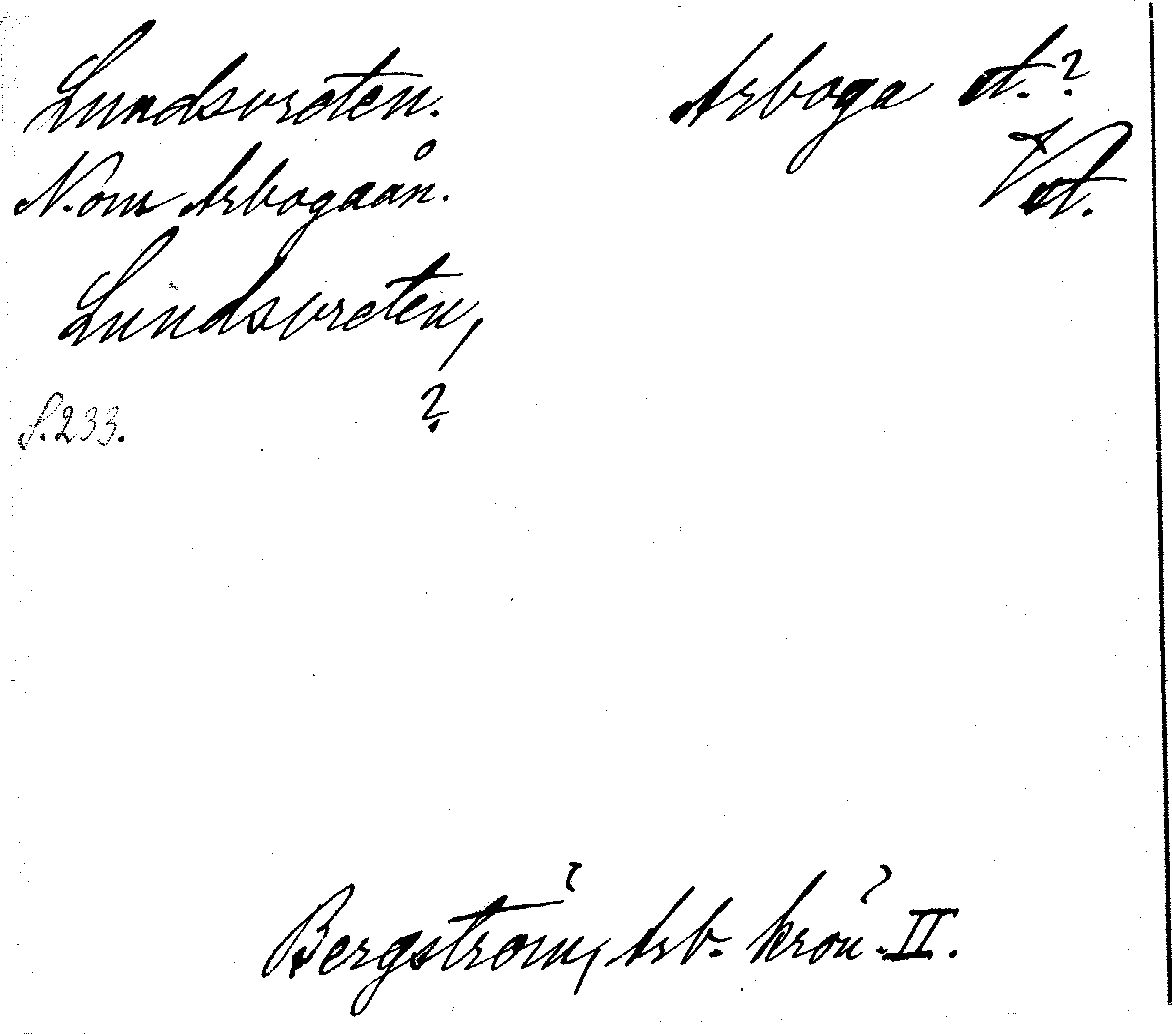 Lundsvreten. Arboga st.?
N. om Arbogaån. Vst.
Lundsvreten,
?
S. 233.
Bergström, Arb. krön. II.